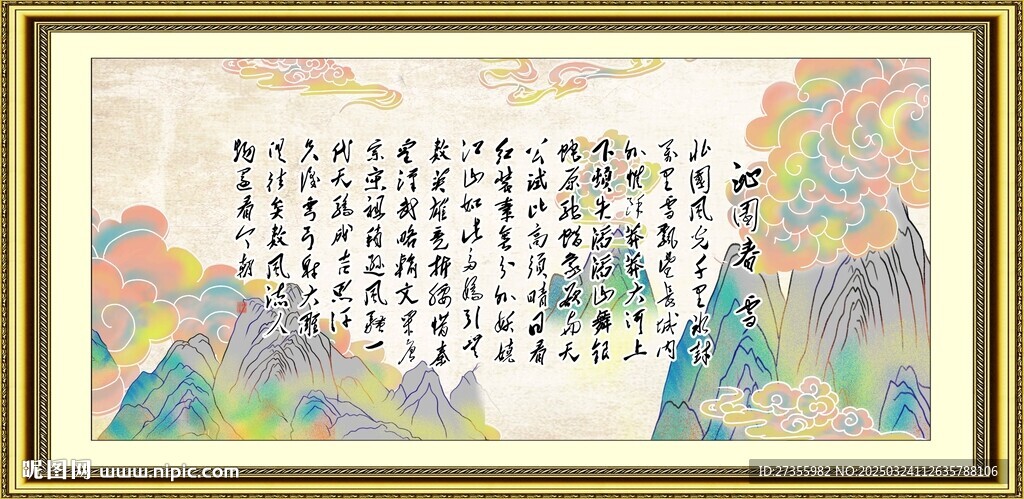 沁園春 雪
北國風光千里冰封
萬里雪飄望長城内
外惟餘莽莽大河上
下頓失滔滔山舞銀
蛇原馳蠟象欲與天
公試比高須晴日看
紅裝素裹分外妖嬈
江山如此多嬌引無
數英雄競折腰惜秦
皇漢武略輸文采唐
宗宋祖稍遜風騷一
代天驕成吉思汗
只識彎弓射大雕
俱往矣數風流人
物還看今朝
昵图网 www.nipic.com
ID:27355982 NO:20250324112635788106